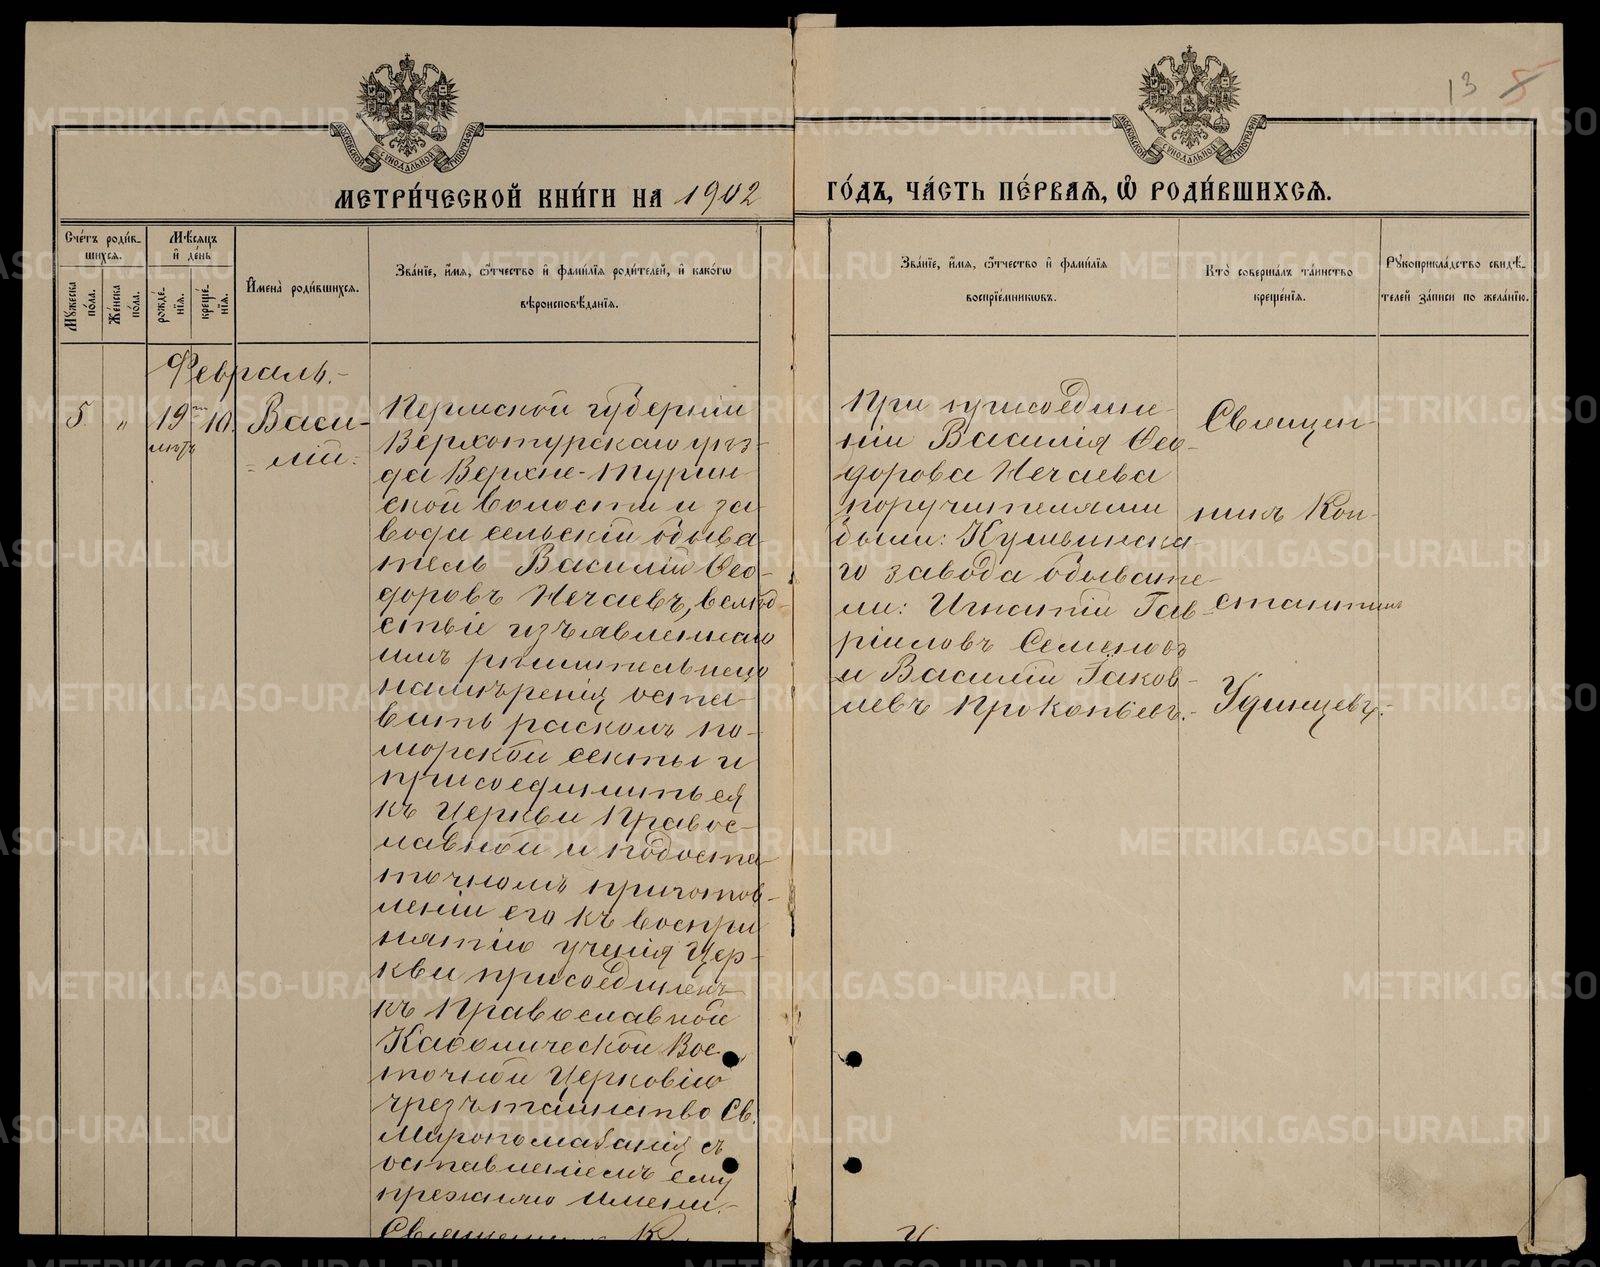 13 8
МОСКОВСКОЙ СѴНОДАЛЬНОЙ ТИПОГРАФІИ
МОСКОВСКОЙ СѴНОДАЛЬНОЙ ТИПОГРАФІИ
МЕТРИ́ЧЕСКОЙ КНИ́ГИ НА 1902 ГО́ДЪ, ЧА́СТЬ ПЕ́РВАЯ, Ѡ҆ РОДИ́ВШИХСѦ.
Сче́тъ роди́в-
шихся.
Мꙋ́жеска по́ла.
Же́нска по́ла.
Мѣ́сяцъ
и҆ де́нь
рожде́-
нїѧ.
креще́-
нїѧ.
И҆мена̀ роди́вшихся.
Зва́нїе, и҆́мѧ, ѻ҆́тчество и҆ фами́лїѧ роди́телей, и҆ како́гѡ
вѣроисповѣ́данїѧ.
Зва́нїе, и҆́мѧ, ѻ҆́тчество и҆ фами́лїѧ
воспрїе́мниковъ.
Кто̀ соверша́лъ та́инство
креще́нїѧ.
Рꙋкоприкла́дство свидѣ́-
телей за́писи по жела́нїю.
Февраль.-
5. „ 19 лѣтъ 10. Васи-
лій.
Пермской губерніи
Верхотурскаго уѣз-
да Верхне-Турин
ской волости и за
вода сельскій обыва
тель Василій Ѳео-
доровъ Нечаевъ, вслѣд-
ствіе изъявленнаго
имъ рѣшительнаго
намѣренія оста-
вить расколъ по-
морской секты и
присоединиться
къ Церкви Правос-
лавной и по доста-
точномъ приготов-
леніи его къ воспри
нятію ученія Цер-
кви присоединенъ
къ Православной
Каѳолической Вос-
точной Церковію
чрезъ таинство Св.
Мѵропомазанія съ
оставленіемъ ему
прежняго имени.-
Священникъ
При присоедине-
ніи Василія Ѳео-
дорова Нечаева
поручителями
были: Кушвинска-
го завода обывате-
ли: Игнатій Гав-
ріиловъ Семеновъ
и Василій Іаков-
левъ Прокопьевъ.-
Священ-
никъ Кон-
стантинъ
Удинцевъ.-
METRIKI.GASO-URAL.RU